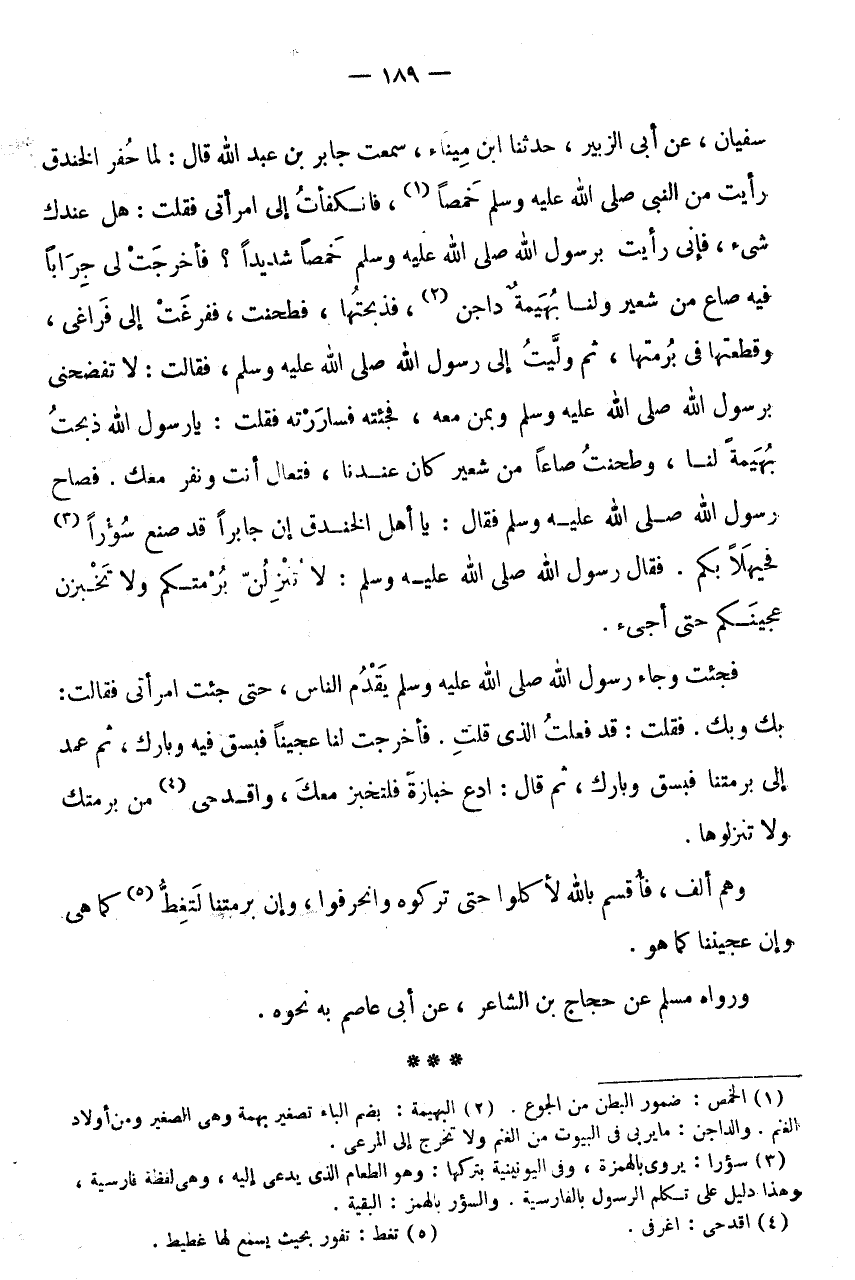 — ١٨٩ —
سفيان ، عن أبى الزبير ، حدثنا ابن مِيناء ، سمعت جابر بن عبد الله قال : لما حُفر الخندق
رأيت من النبى صلى الله عليه وسلم خَمصاً (١) ، فانـكفأتُ إلى امرأتى فقلت : هل عندك
شىء ، فإنى رأيت برسول الله صلى الله عليه وسلم خَمصاً شديداً ؟ فأخرجَتْ لى جِرَاباً
فيه صاع من شعير ولنـا بُهَيمةٌ داجن (٢) ، فذبحتُها ، فطحنت ، ففرغَتْ إلى فَراغى ،
وقطعتها فى بُرمتها ، ثم ولَّيتُ إلى رسول الله صلى الله عليه وسلم ، فقالت : لا تفضحنى
برسول الله صلى الله عليه وسلم وبمن معه ، فجئته فسارَرْته فقلت : يارسول الله ذبحتُ
بُهَيمةً لنـا ، وطحنتُ صاعاً من شعير كان عنـدنا ، فتعال أنت ونفر معك . فصاح
رسول الله صـلى الله عليـه وسلم فقال : يا أهل الخنـدق إن جابراً قد صنع سُؤْراً (٣)
فحيهَلاً بكم . فقال رسول الله صلى الله عليـه وسلم : لا تُنْزِلُنّ بُرْمتـكم ولا تَخْـبزن
عجينَـكم حتى أجىء .
فجئت وجاء رسول الله صلى الله عليه وسلم يَقْدُم الناس ، حتى جئت امرأتى فقالت:
بك وبك . فقلت : قد فعلتُ الذى قلتِ . فأخرجت لنا عجيناً فبسق فيه وبارك ، ثم عمد
إلى برمتنا فبسق وبارك ، ثم قال : ادع خبازةً فلتخبز معكَ ، واقـدحى (٤) من برمتك
ولا تنزلوها .
وهم ألف ، فأُقسم بالله لأكلوا حتى تركوه وانحرفوا ، وإن برمتنا لَتغِطُّ (٥) كما هى
وإن عجيننا كما هو .
ورواه مسلم عن حجاج بن الشاعر ، عن أبى عاصم به نحوه .
***
(١) الخمص : ضمور البطن من الجوع . (٢) البهيمة : بضم الباء تصغير بهمة وهى الصغير ومن أولاد
الغنم . والداجن : مايربى فى البيوت من الغنم ولا تخرج إلى المرعى .
(٣) سؤرا : يروى بالهمزة ، وفى اليونينية بتركها : وهو الطعام الذى يدعى إليه ، وهى لفظة فارسية ،
وهذا دليل على تـكلم الرسول بالفارسية . والسؤر بالهمز : البقية .
(٤) اقدحى : اغرفى . (٥) تغط : تفور بحيث يسمع لها غطيط .